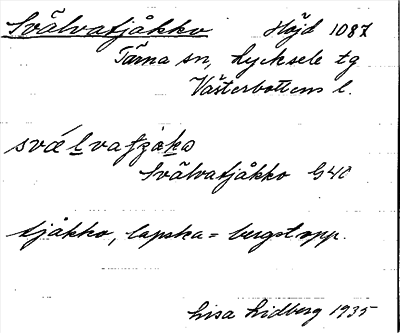 Svålvatjåkko Höjd 1087
Tärna sn, Lycksele tg
Västerbottens l.
Svålvatjåkko G4C
tjåkko, lapska = bergstopp.
Lisa Lidberg 1935